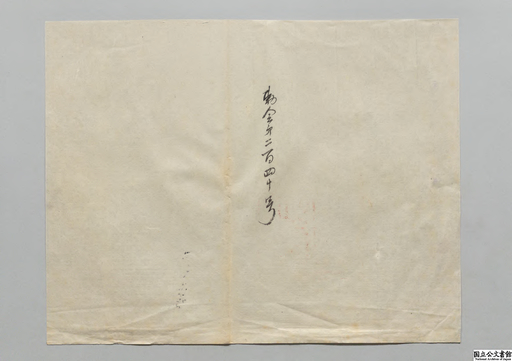 勅令第二百四十号
国立公文書館
National Archives of Japan